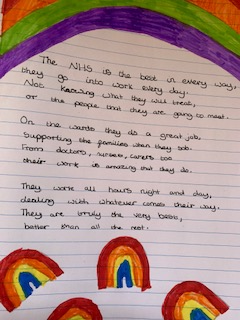 The NHS is the best in every way,
they go into work every day.
Not knowing what they will treat,
or the people that they are going to meet.
On the wards they do a great job,
Supporting the families when they sob.
From doctors, nurses, carers too
their work is amazing that they do.
They work all hours night and day,
dealing with whatever comes their way.
They are truly the very best,
better than all the rest.